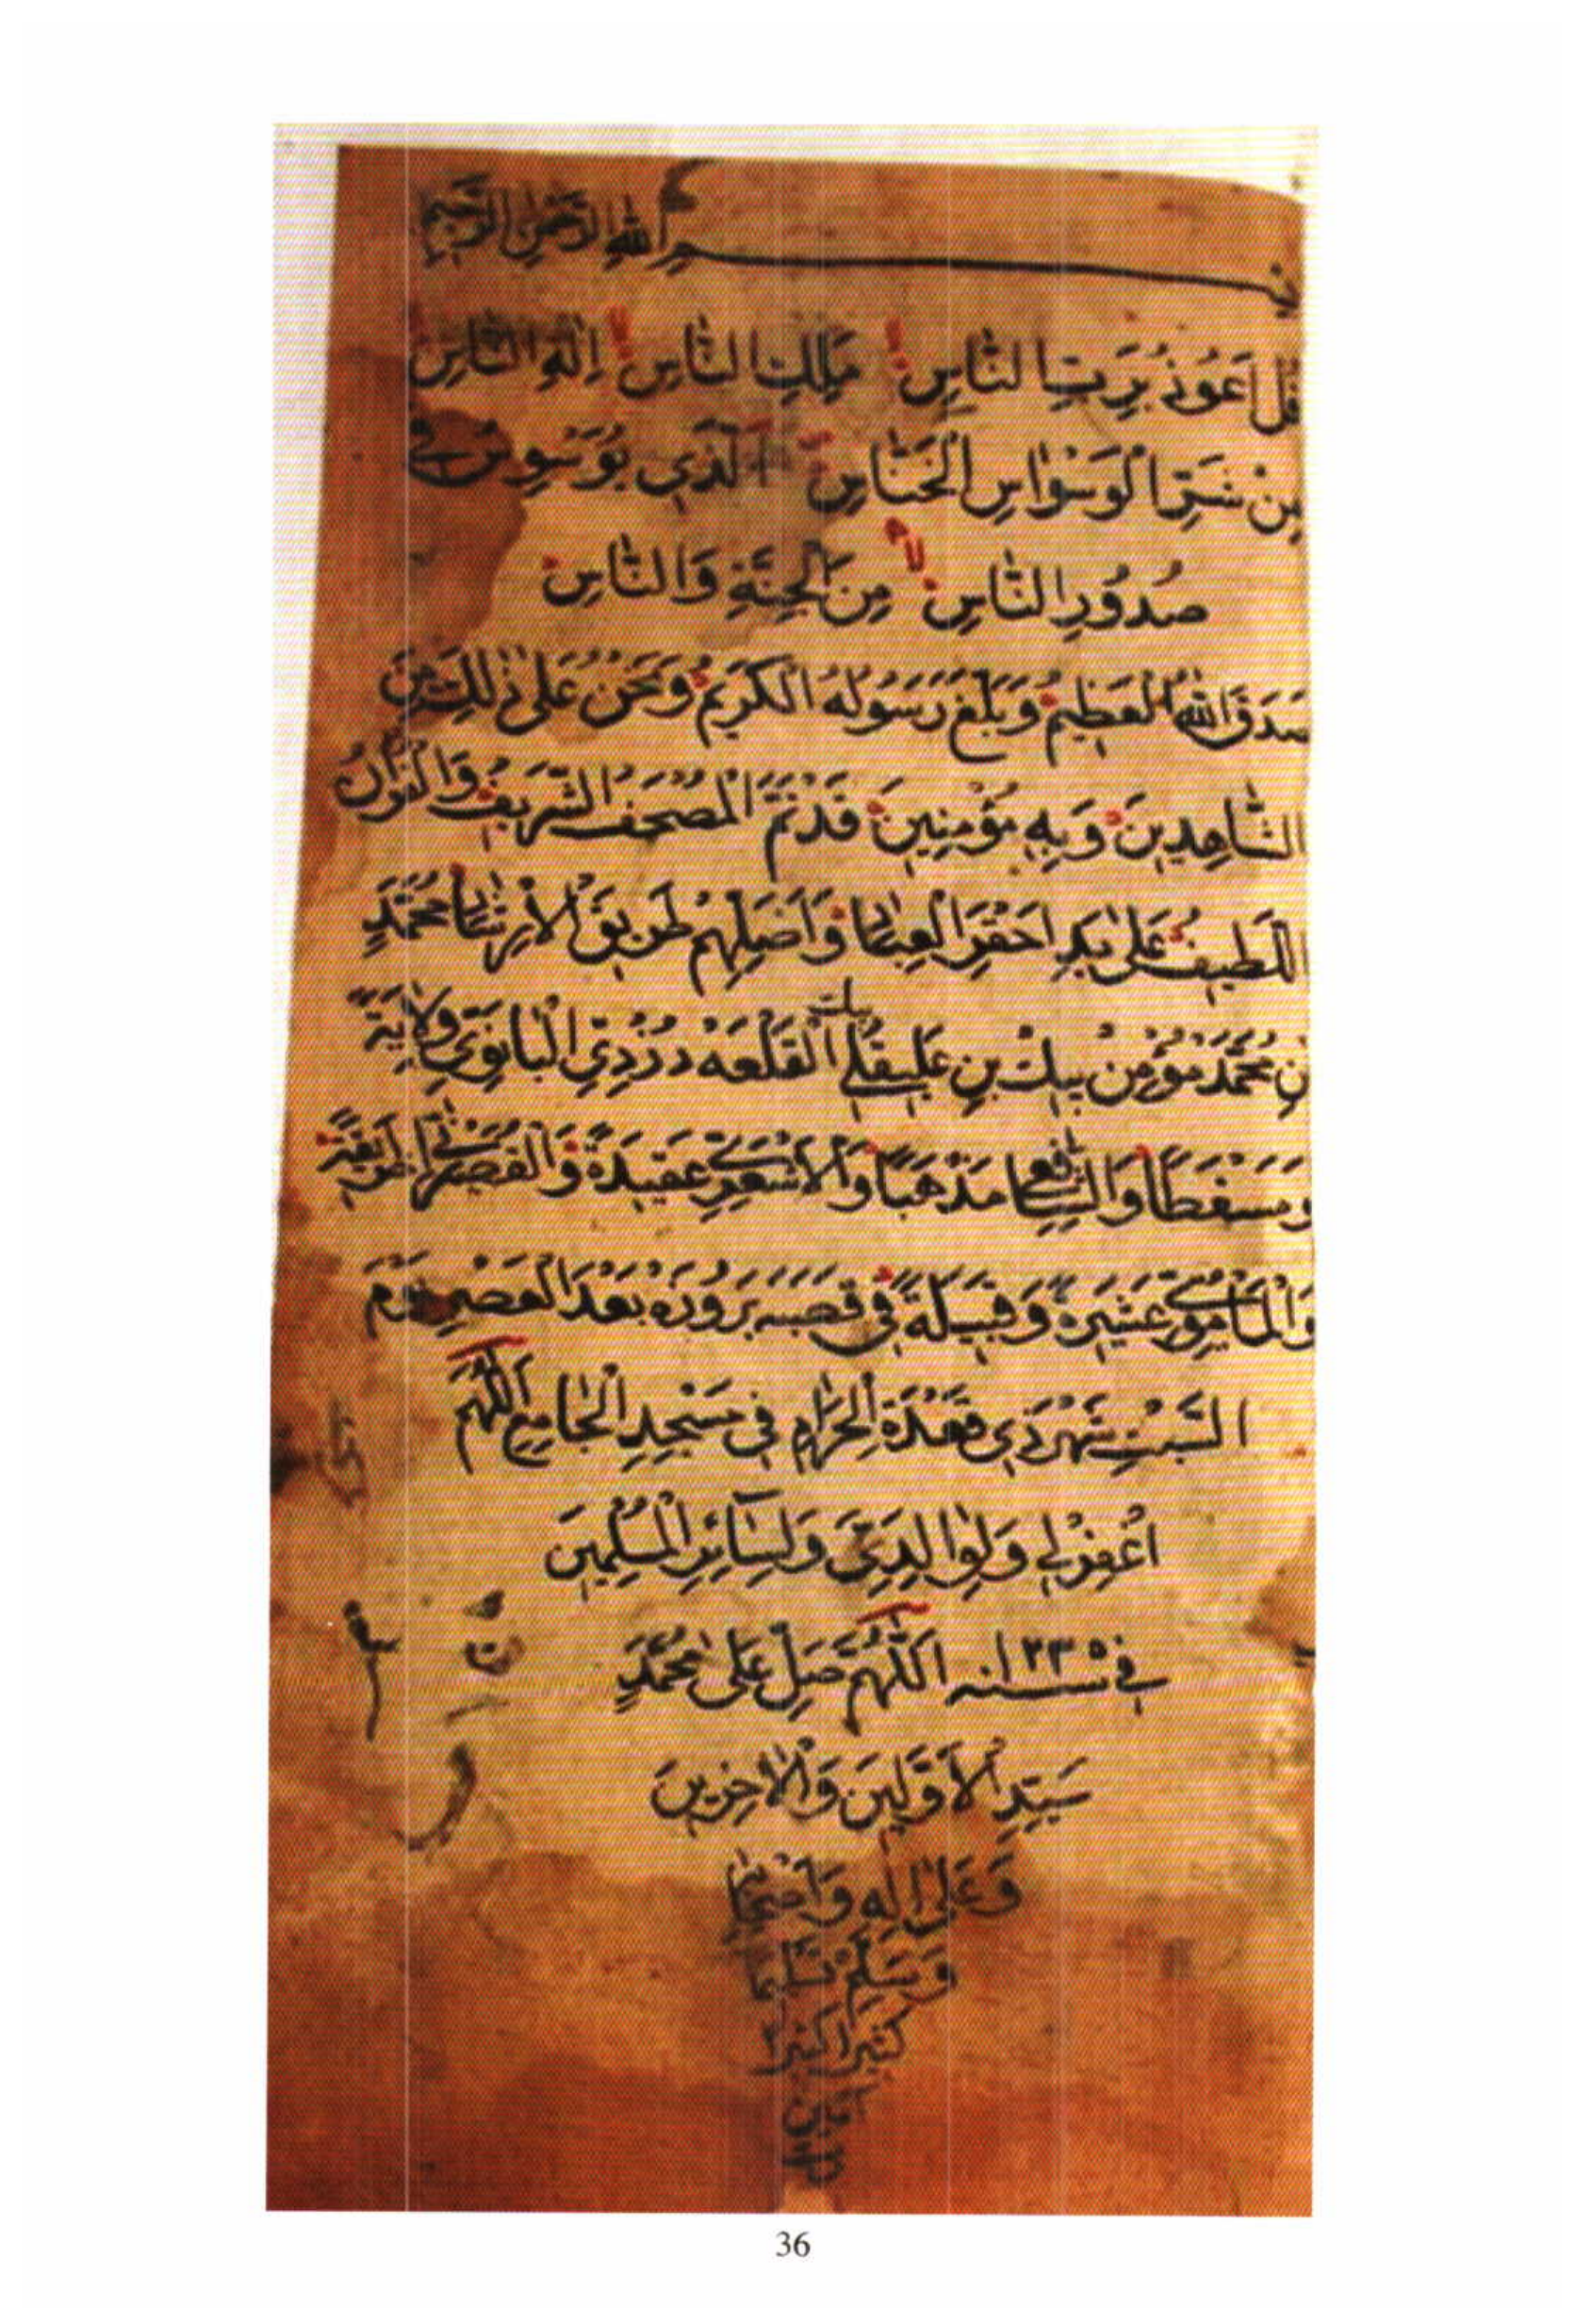 بسم الله الرحمن الرحيم
قُلْ اَعُوذُ بِرَبِّ النَّاسِ مَلِكِ النَّاسِ اِلٰهِ النَّاسِ
مِنْ شَرِّ الْوَسْوَاسِ الْخَنَّاسِ اَلَّذِي يُوَسْوِسُ فِي
صُدُورِ النَّاسِ مِنَ الْجِنَّةِ وَالنَّاسِ
صَدَقَ اللهُ الْعَظِيمُ وَبَلَّغَ رَسُولُهُ الْكَرِيمُ وَنَحْنُ عَلَى ذٰلِكَ مِنَ
الشَّاهِدِينَ وَبِهِ مُؤْمِنِينَ قَدْ تَمَّ الْمُصْحَفُ الشَّرِيفُ وَالْقُرْآنُ
اللَّطِيفُ عَلَى يَدِ اَحْقَرِ الْعِبَادِ وَاَضَلِّهِمْ طَرِيقَ الْاِرْشَادِ مُحَمَّدٍ
بْنِ مُحَمَّدْ مُؤْمِنْ بِيكْ بْنِ عَلِيقُلِي بيك الْقَلْعَهْ دُزْدِيِّ الْبَانَوِيِّ وِلَايَةً
وَمَسْقَطًا وَالشَّافِعِيِّ مَذْهَبًا وَالْاَشْعَرِيِّ عَقِيدَةً
عَشِيرَةً وَقَبِيلَةً فِي قَصَبَه بَعْدَ الْعَصْرِ يَوْمَ
السَّبْتِ شَهْرِ ذِي قَعْدَةِ الْحَرَامِ فِي مَسْجِدِ الْجَامِعِ اَللّٰهُمَّ
اغْفِرْ لِي وَلِوَالِدَيَّ وَلِسَائِرِ الْمُسْلِمِينَ
في سنه ١٢٣٥ اَللّٰهُمَّ صَلِّ عَلَى مُحَمَّدٍ
سَيِّدِ الْاَوَّلِينَ وَالْاٰخِرِينَ
وَعَلَى اٰلِهِ وَاَصْحَابِهِ
وَسَلِّمْ تَسْلِيمًا
كثيرا كثيرا
آمين
36